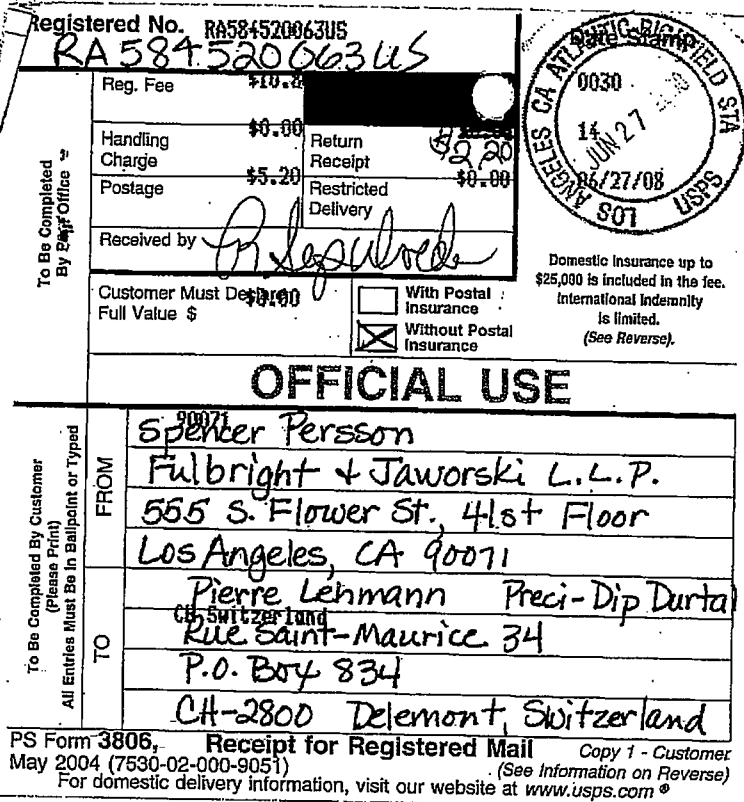 Registered No. RA584520063US
RA584520063US
Date Stamp
To Be Completed By Post Office
Reg. Fee
Handling Charge $0.00
Return Receipt $2.20
Postage $5.20
Restricted Delivery $0.00
Received by
Customer Must Declare Full Value $ $0.00
With Postal Insurance
Without Postal Insurance
LOS ANGELES CA USPS
0030
14
JUN 27
06/27/08
Domestic Insurance up to
$25,000 is included in the fee.
International Indemnity
is limited.
(See Reverse).
OFFICIAL USE
To Be Completed By Customer
(Please Print)
All Entries Must Be in Ballpoint or Typed
FROM
90071
Spencer Persson
Fulbright & Jaworski L.L.P.
555 S. Flower St., 41st Floor
Los Angeles, CA 90071
TO
Pierre Lehmann Preci-Dip Durtal
CH Switzerland
Rue Saint-Maurice 34
P.O. Box 834
CH-2800 Delemont, Switzerland
PS Form 3806, Receipt for Registered Mail Copy 1 - Customer
May 2004 (7530-02-000-9051) (See Information on Reverse)
For domestic delivery information, visit our website at www.usps.com ®